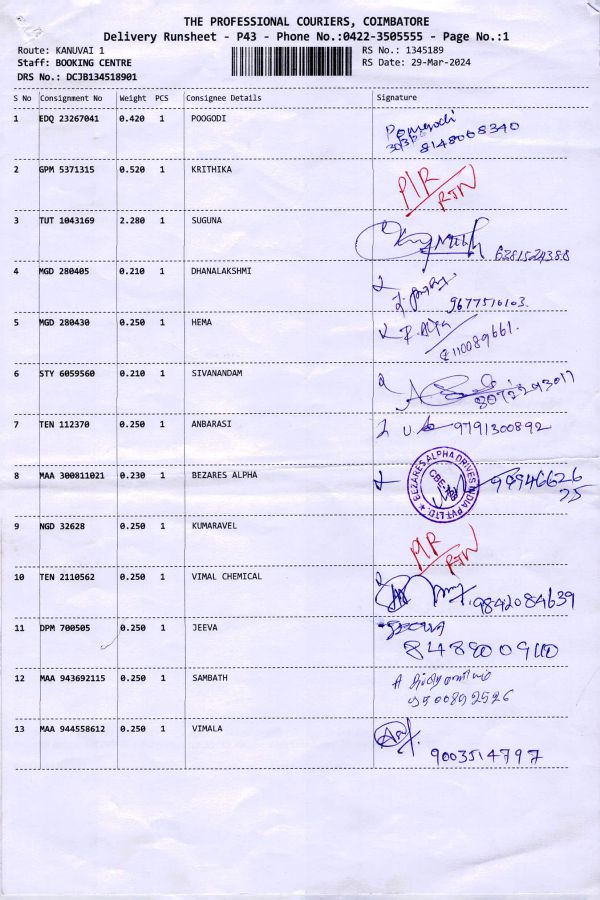 THE PROFESSIONAL COURIERS, COIMBATORE
Delivery Runsheet - P43 - Phone No.:0422-3505555 - Page No.:1
Route: KANUVAI 1 RS No.: 1345189
Staff: BOOKING CENTRE RS Date: 29-Mar-2024
DRS No.: DCJB134518901
S No Consignment No Weight PCS Consignee Details Signature
1 EDQ 23267041 0.420 1 POOGODI
8148008340
2 GPM 5371315 0.520 1 KRITHIKA P/R
RTN
3 TUT 1043169 2.280 1 SUGUNA
6281524388
4 MGD 280405 0.210 1 DHANALAKSHMI
9677516103.
5 MGD 280430 0.250 1 HEMA
6 STY 6059560 0.210 1 SIVANANDAM
7 TEN 112370 0.250 1 ANBARASI 9791300892
8 MAA 300811021 0.230 1 BEZARES ALPHA
BEZARES ALPHA DRIVES INDIA PVT LTD.
CBE
99946626
25
9 NGD 32628 0.250 1 KUMARAVEL P/R
RTN
10 TEN 2110562 0.250 1 VIMAL CHEMICAL
9842084639
11 DPM 700505 0.250 1 JEEVA
12 MAA 943692115 0.250 1 SAMBATH
9500892526
13 MAA 944558612 0.250 1 VIMALA
9003514797